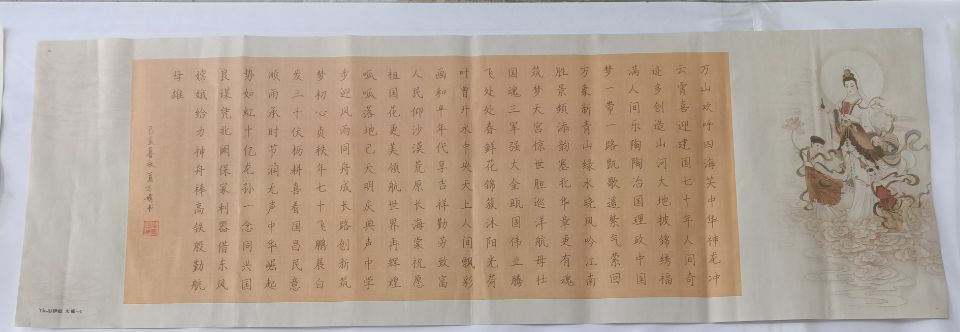 万山欢呼四海笑中华神龙冲
云霄喜迎建国七十年人间奇
迹多创造山河大地披锦绣福
满人间乐陶陶治国理政中国
梦一带一路凯歌遥紫气萦回
万象新青山绿水晓风吟江南
胜景频添韵塞北华章更有魂
筑梦天宫惊世胆巡洋航母壮
国魂三军强大金瓯国伟业腾
飞处处春鲜花锦簇沐阳光荷
叶曾开水中央天上人间飘彩
画和平年代寻吉祥勤劳致富
人民仰沙漠荒原长海棠祝愿
祖国花更美领航世界再辉煌
呱呱落地已天明庆典声中学
步迎风雨同舟成长路创新筑
梦初心贞秩年七十飞鹏展白
发三千伏枥耕喜看国昌民意
顺雨承时节润无声中华崛起
势如虹十亿龙孙一念同兴国
良谋凭北阙保家利器借东风
嫦娥给力神舟棒高铁殷勤航
母雄
己亥暮秋